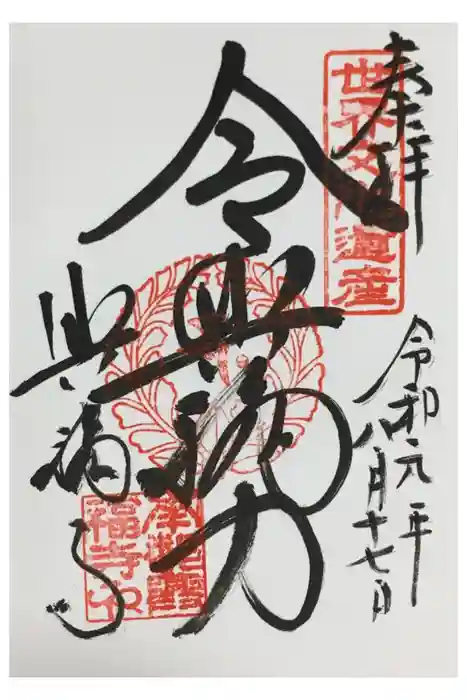 奉拝
世界文化遺産
令和元年
八月十七日
令興福力
興福寺